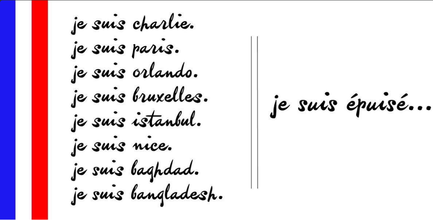 je suis charlie.
je suis paris.
je suis orlando.
je suis bruxelles.
je suis istanbul.
je suis nice.
je suis baghdad.
je suis bangladesh.
je suis épuisé...